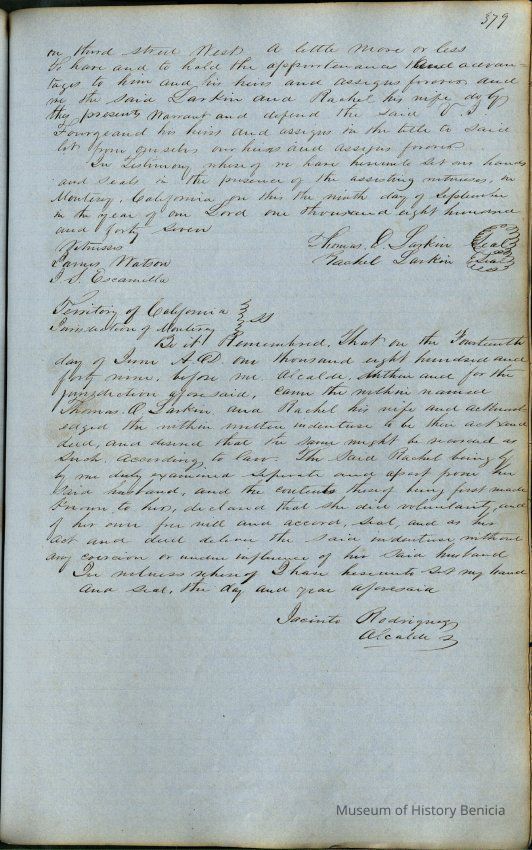 379
on third street West. A little more or less
to have and to hold the appurtenances and advan-
tages to him and his heirs and assigns forever and
we the said Larkin and Rachel his wife do by
these presents Warrant and defend the said
Fourgeaud his heirs and assigns in the title to said
lot from ourselves our heirs and assigns forever
In Testimony whereof we have hereunto set our hands
and seals in the presence of the assisting witnesses, in
Monterey, California on this the ninth day of September
in the year of our Lord one thousand eight hundred
and forty seven
Witnesses Thomas O. Larkin Seal
James Watson Rachel Larkin Seal
J. S. Escamilla
Territory of California
Jurisdiction of Monterey SS
Be it Remembered, That on the Fourteenth
day of June A.D. one thousand eight hundred and
forty nine, before me Alcalde, within and for the
jurisdiction aforesaid, came the within named
Thomas O. Larkin and Rachel his wife and acknow
ledged the within written indenture to be their act and
deed, and desired that the same might be recorded as
such. According to law. The said Rachel being of
by me duly examined seperate and apart from her
said husband, and the contents thereof being first made
known to her, declared that she did voluntarily, and
of her own free will and accord, seal, and as his
act and deed deliver the said indenture, without
any coercion or undue influence of his said husband
In witness whereof I have hereunto set my hand
and seal, the day and year aforesaid
Jacinto Rodriguez
Alcalde
Museum of History Benicia